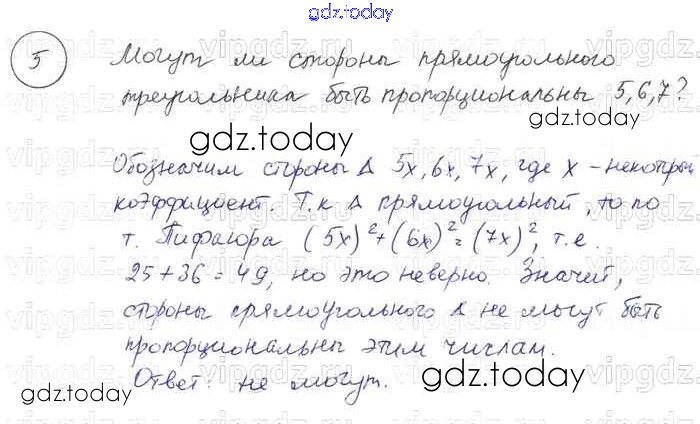 gdz.today
5 Могут ли стороны прямоугольного
треугольника быть пропорциональны 5,6,7?
gdz.today
gdz.today
Обозначим стороны Δ 5x, 6x, 7x, где x - некоторый
коэффициент. Т.к Δ прямоугольный, то по
т. Пифагора (5x)²+(6x)²=(7x)², т.е.
25+36=49, но это неверно. Значит,
стороны прямоугольного Δ не могут быть
пропорциональны этим числам.
Ответ: не могут.
gdz.today
gdz.today